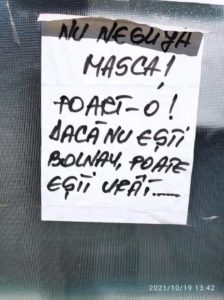 NU NEGLIJA
MASCA!
POART-O!
DACĂ NU EȘTI
BOLNAV, POATE
EȘTI URÂT.....
2021/10/19 13:42